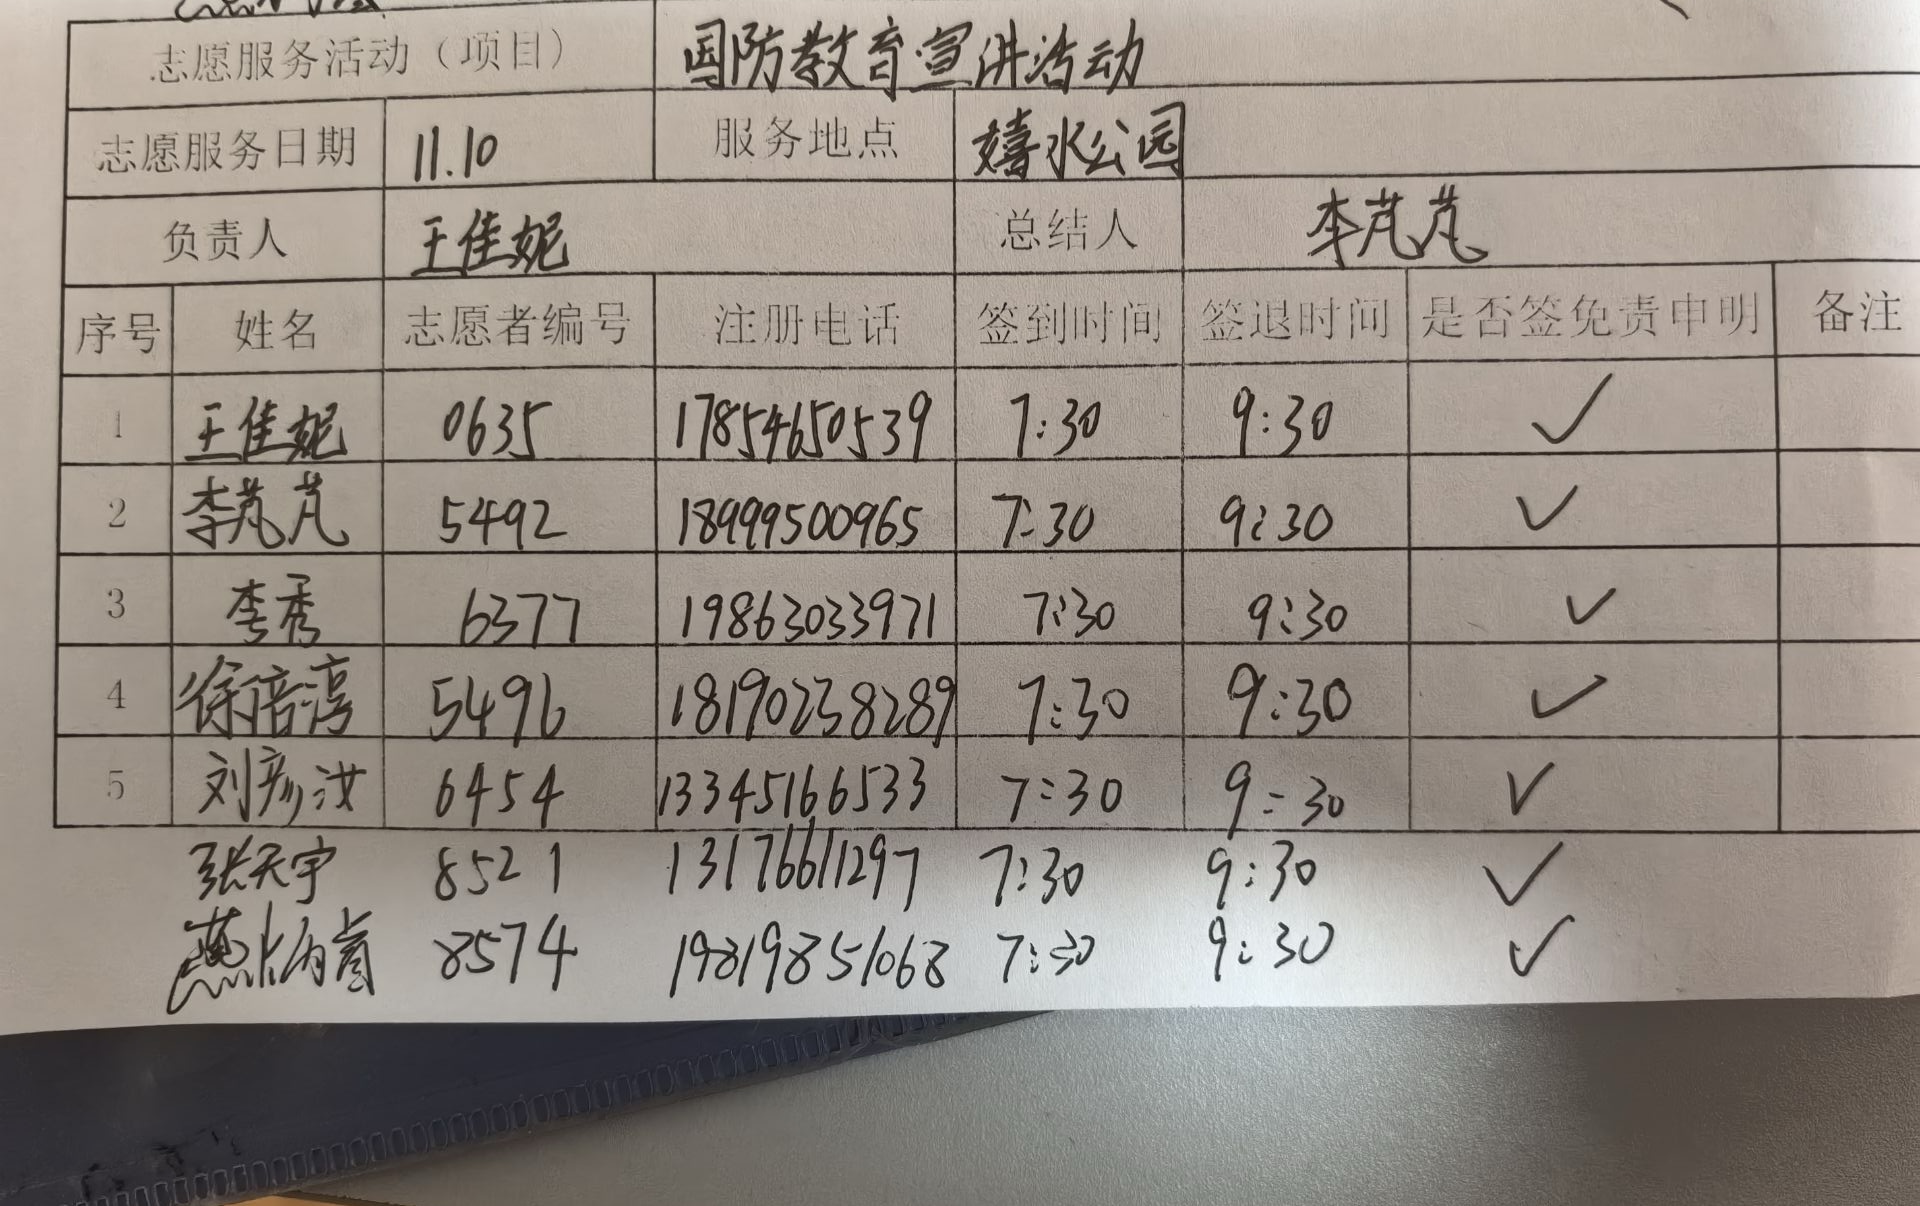 志愿服务活动（项目） 国防教育宣讲活动
志愿服务日期 11.10 服务地点 嬉水公园
负责人 王佳妮 总结人 李芃芃
序号 姓名 志愿者编号 注册电话 签到时间 签退时间 是否签免责申明 备注
1 王佳妮 0635 17854650539 7:30 9:30 ✓
2 李芃芃 5492 18999500965 7:30 9:30 ✓
3 李秀 6377 19863033971 7:30 9:30 ✓
4 徐倍淳 5496 18190238289 7:30 9:30 ✓
5 刘彦汝 6454 13345166533 7:30 9:30 ✓
张天宇 8521 13176611297 7:30 9:30 ✓
8574 19819851068 7:30 9:30 ✓